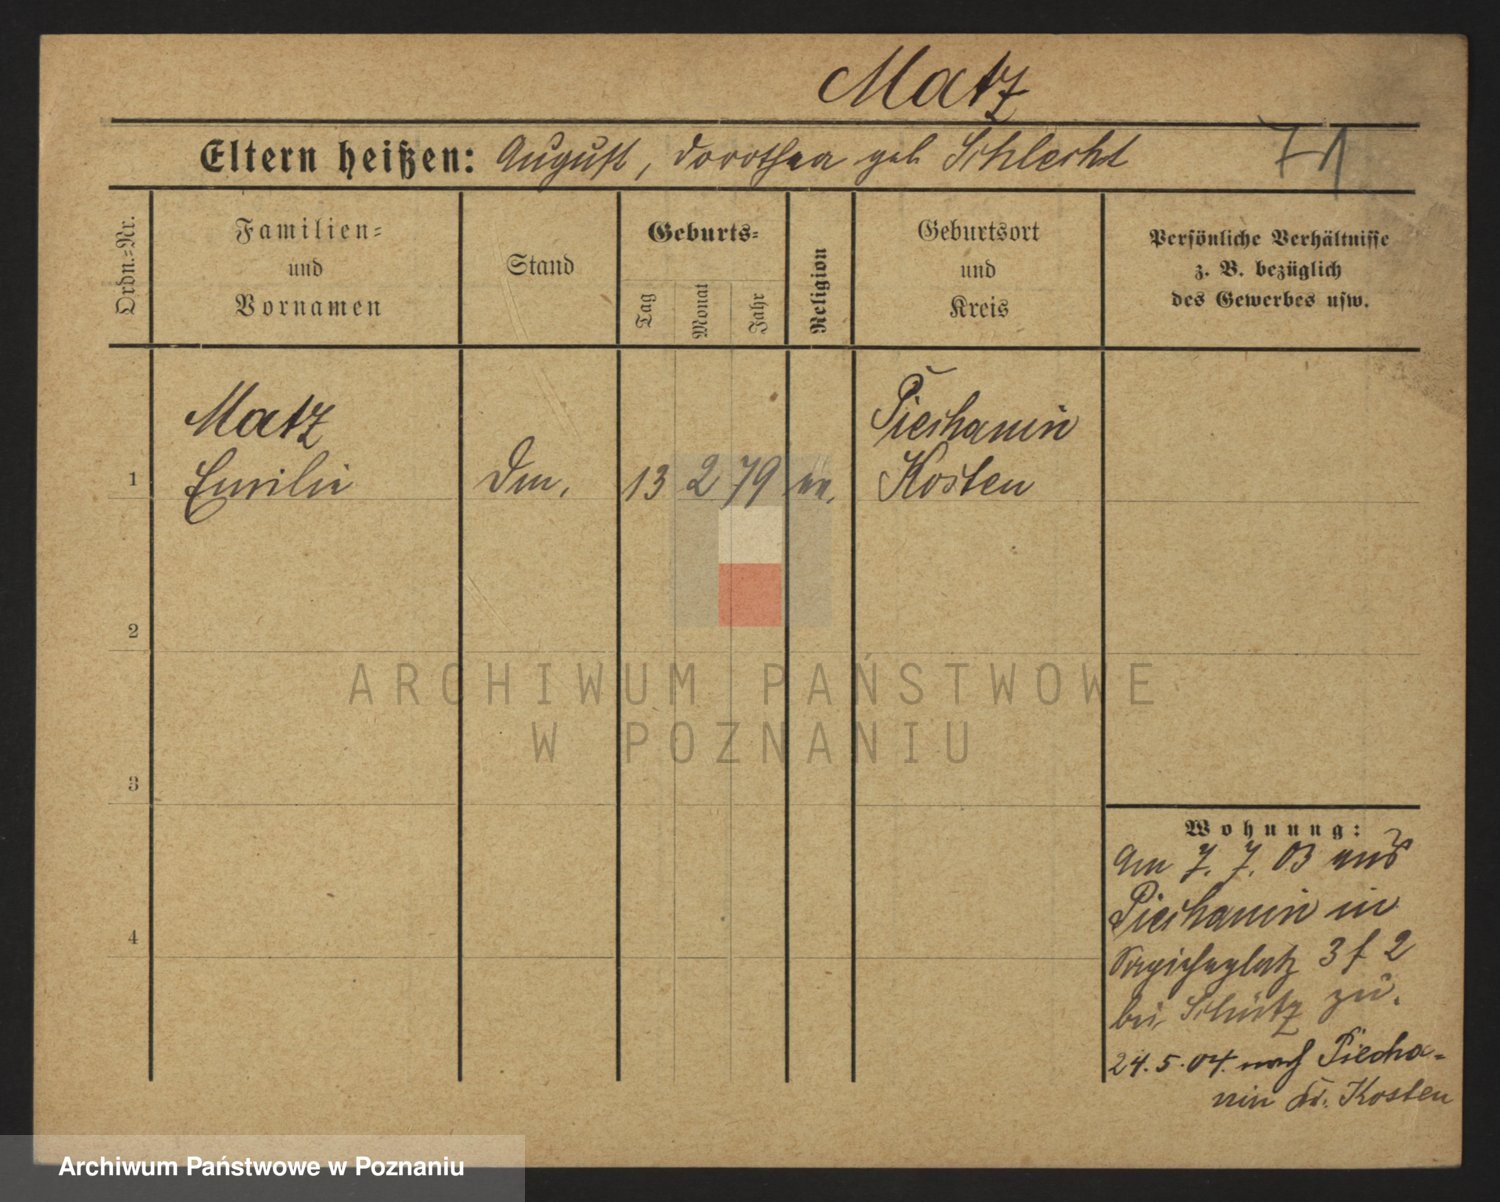 Matz
Eltern heißen: August, Dorothea geb Schlecht
71
Ordn.-Nr.
Familien- und Vornamen
Stand
Geburts-
Tag
Monat
Jahr
Religion
Geburtsort und Kreis
Persönliche Verhältnisse
z. B. bezüglich
des Gewerbes usw.
1
Matz
Emilie
13 2 79
ev.
Piechanin
Kosten
2
3
4
Wohnung:
Am 7. 7. 03 aus
Piechanin in
3 f 2
bei Schütz zu.
24.5.04. nach Piecha-
nin Kr. Kosten
ARCHIWUM PAŃSTWOWE
W POZNANIU
Archiwum Państwowe w Poznaniu